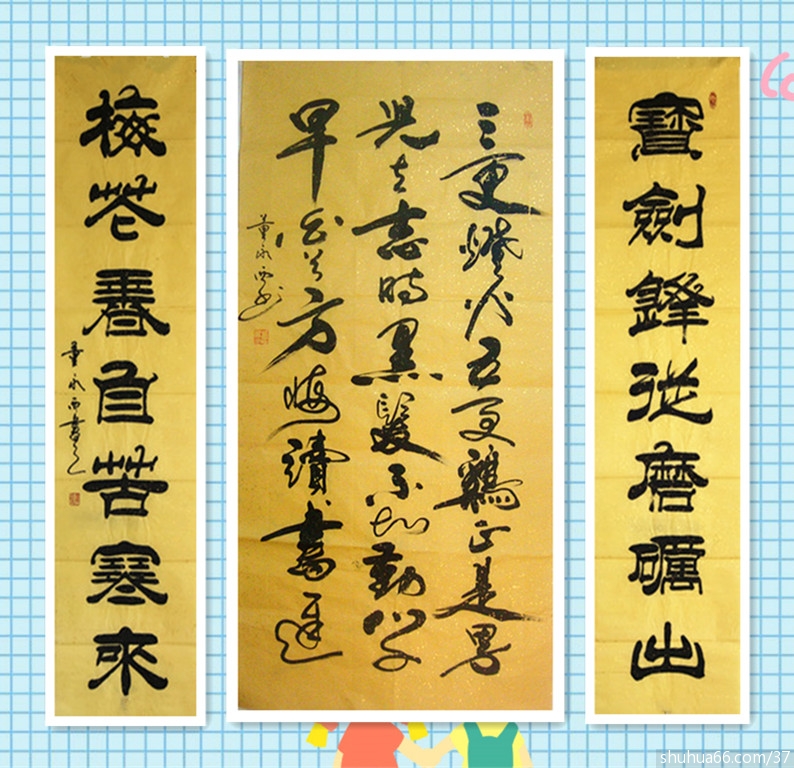 寶劍鋒從磨礪出
三更燈火五更鷄正是男
兒立志時黑髮不知勤學
早白首方悔讀書遲
董永西書
梅花香自苦寒來
董永西書之
shuhua66.com/37